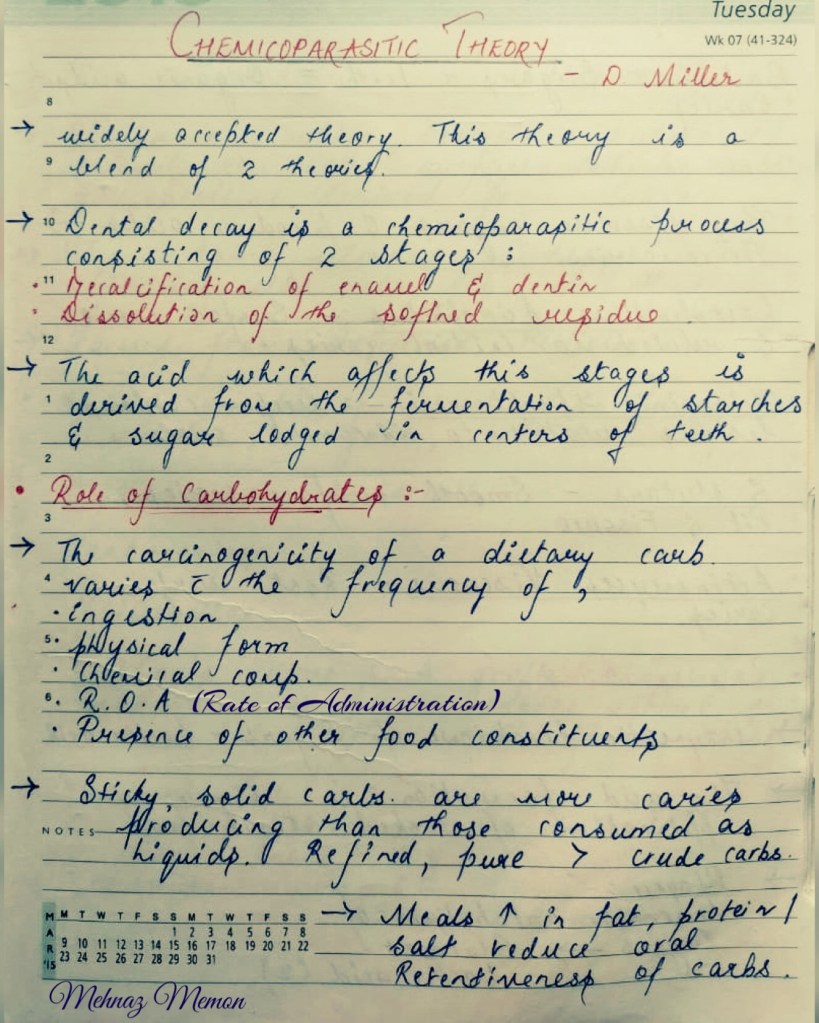 Tuesday
Wk 07 (41-324)
CHEMICOPARASITIC THEORY
- D Miller
8
→ widely accepted theory. This theory is a
9 blend of 2 theories.
→ 10 Dental decay is a chemicoparasitic process
consisting of 2 stages :
• 11 Decalcification of enamel & dentin
• Dissolution of the softned residue .
12
→ The acid which affects this stages is
1 derived from the fermentation of starches
& sugar lodged in centers of teeth .
2
• Role of Carbohydrates :-
3
→ The carcinogenicity of a dietary carb.
4 varies c̄ the frequency of ,
• ingestion
5 • physical form
• Chemical comp.
6 • R.O.A (Rate of Administration)
• Presence of other food constituents
→ Sticky, solid carbs. are more caries
NOTES producing than those consumed as
liquids. Refined, pure > crude carbs.
→ Meals ↑ in fat, protein /
salt reduce oral
Retentiveness of carbs.
MAR '15
M T W T F S S M T W T F S S
1 2 3 4 5 6 7 8
9 10 11 12 13 14 15 16 17 18 19 20 21 22
23 24 25 26 27 28 29 30 31
Mehnaz Memon